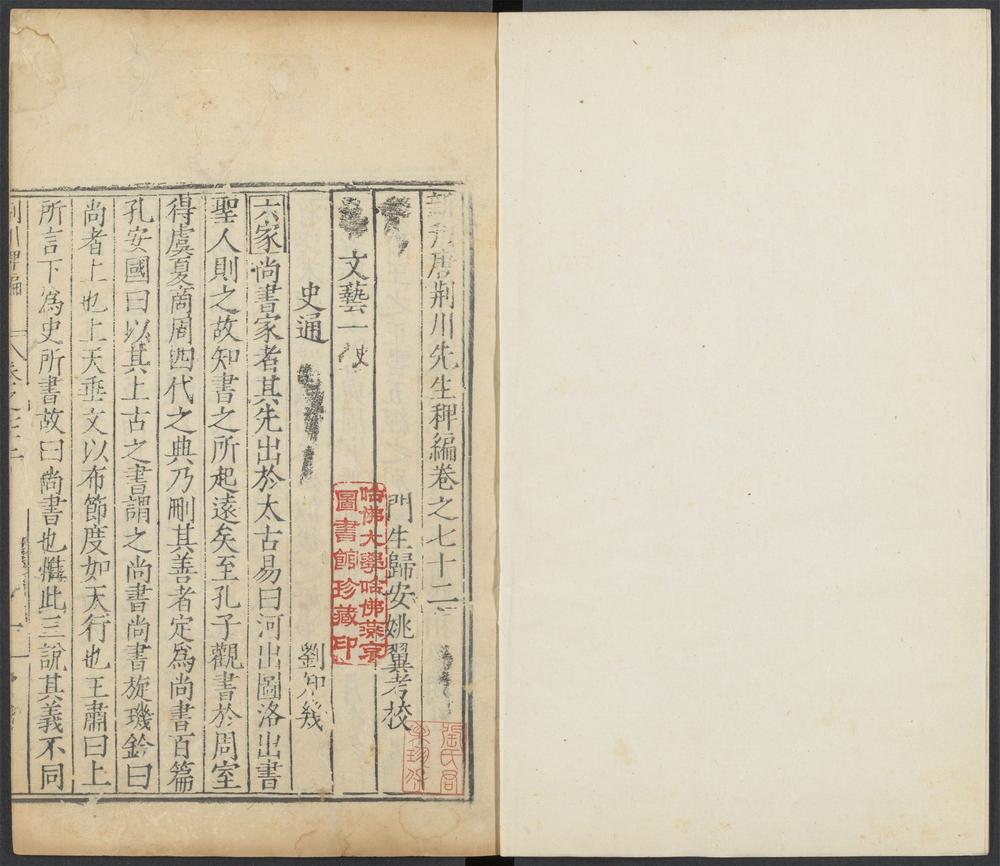 荊川先生稗編卷之七十二
門生歸安姚翼考校
文藝一 史
史通
劉知幾
六家 尚書家者其先出於太古易曰河出圖洛出書
聖人則之故知書之所起遠矣至孔子觀書於周室
得虞夏商周四代之典乃刪其善者定爲尚書百篇
孔安國曰以其上古之書謂之尚書尚書旋璣鈐曰
尚者上也上天垂文以布節度如天行也王肅曰上
所言下爲史所書故曰尚書也惟此三說其義不同
荊川稗編 卷之七十二
哈佛大學哈佛燕京
圖書館珍藏印